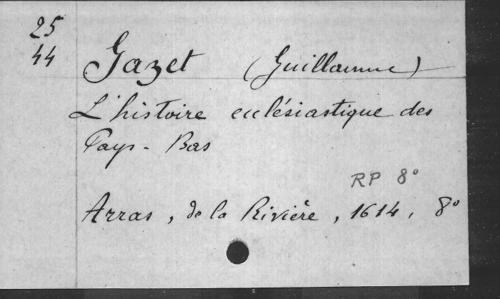 25
44
Gazet (Guillaume)
L'histoire ecclésiastique des
Pays-Bas
RP 8°
Arras, de la Rivière, 1614, 8°